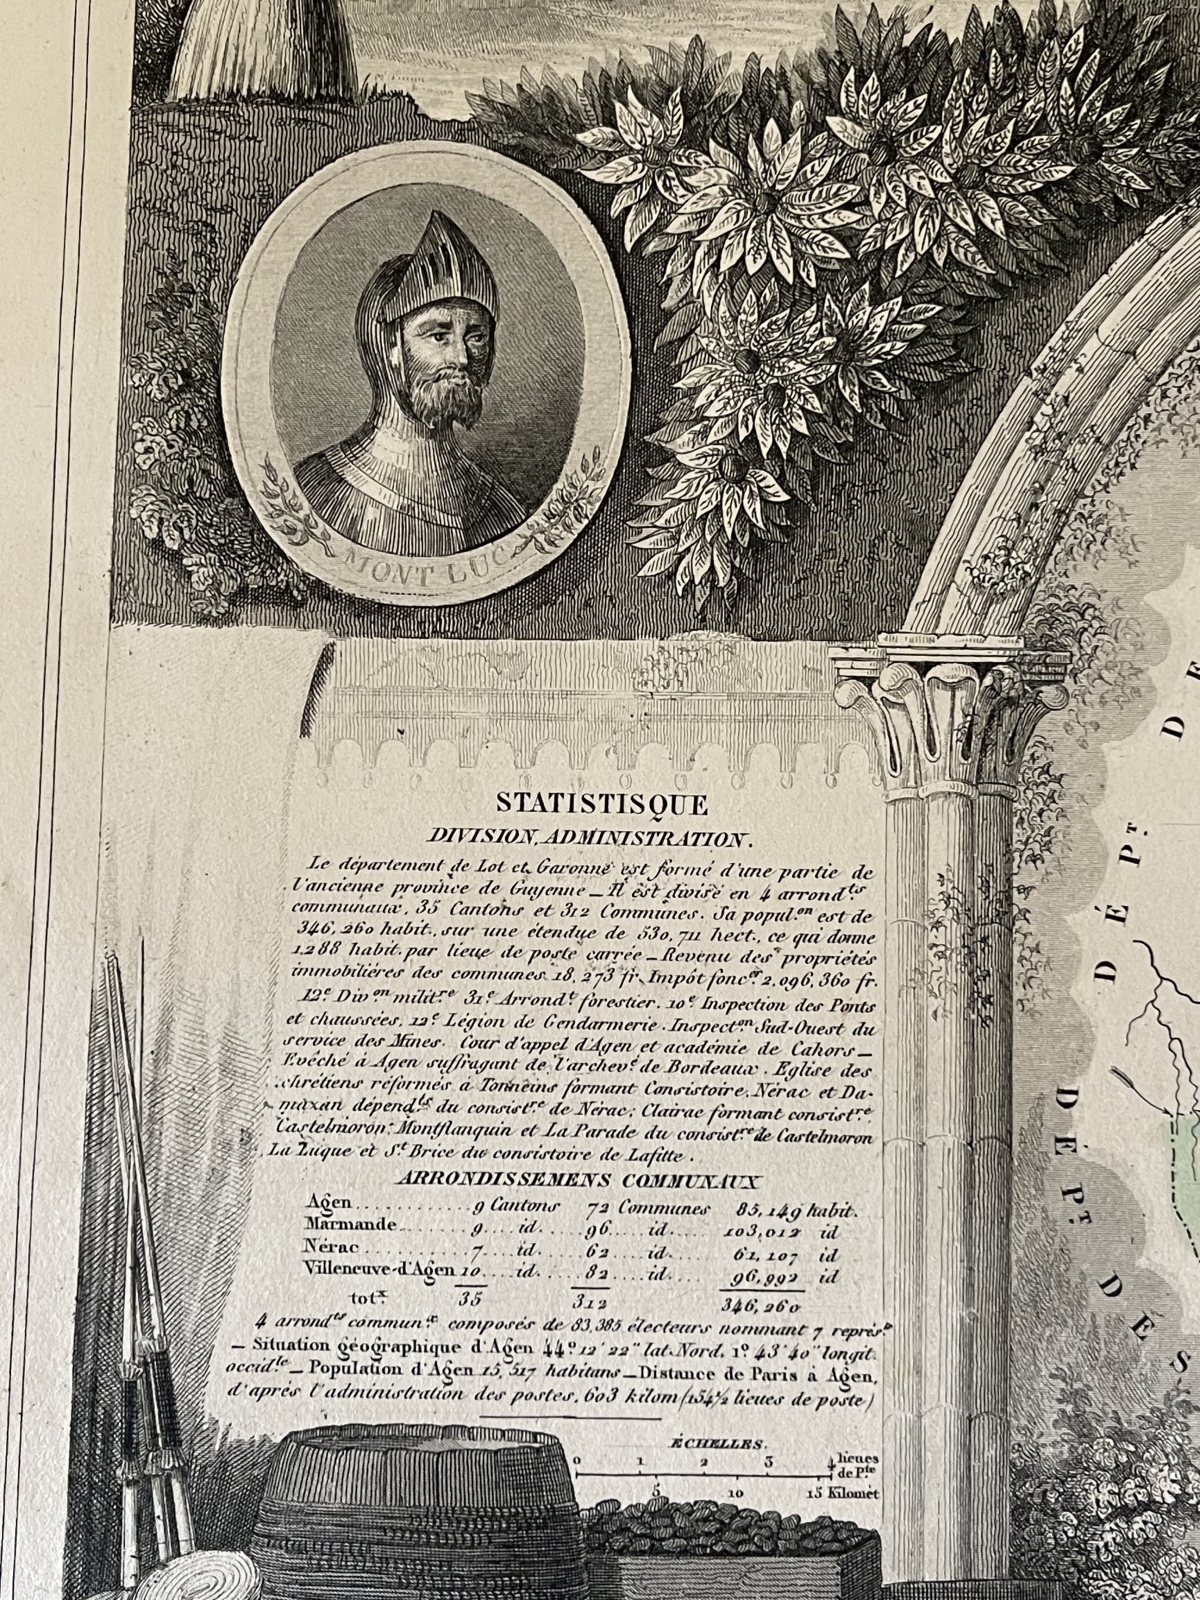 MONT LUC
STATISTISQUE
DIVISION, ADMINISTRATION.
Le département de Lot et Garonne est formé d'une partie de
l'ancienne province de Guyenne _ Il est divisé en 4 arrond.ts
communaux, 35 Cantons et 312 Communes. Sa popul.on est de
346,260 habit., sur une étendue de 530,711 hect., ce qui donne
1,288 habit. par lieue de poste carrée _ Revenu des propriétés
immobilières des communes 18,273 fr. Impôt fonc.er 2,096,360 fr.
12e Div.on milit.re 31e Arrond.t forestier. 10e Inspection des Ponts
et chaussées. 12e Légion de Gendarmerie. Inspect.on Sud-Ouest du
service des Mines. Cour d'appel d'Agen et académie de Cahors _
Evêché à Agen suffragant de l'archev.é de Bordeaux. Eglise des
chrétiens réformés à Tonneins formant Consistoire. Nérac et Da-
mazan dépend.ts du consist.re de Nérac; Clairac formant consist.re
Castelmoron, Montflanquin et La Parade du consist.re de Castelmoron
La Luque et St Brice du consistoire de Lafitte.
ARRONDISSEMENS COMMUNAUX
Agen ........... 9 Cantons 72 Communes 85,149 habit.
Marmande ....... 9 .... id. .... 96 .... id. .... 103,012 id
Nérac .......... 7 .... id. .... 62 .... id. .... 61,107 id
Villeneuve-d'Agen 10 .... id. .... 82 .... id. .... 96,992 id
tot.x 35 312 346,260
4 arrond.ts commun.x composés de 83,385 électeurs nommant 7 représ.s
_ Situation géographique d'Agen 44° 12' 22" lat. Nord. 1° 43' 40" longit.
occid.le _ Population d'Agen 15,517 habitans _ Distance de Paris à Agen,
d'après l'administration des postes, 603 kilom (154 1/2 lieues de poste)
ÉCHELLES.
0 1 2 3 4 lieues
de P.te
5 10 15 Kilomèt
DÉPT. DE
DÉPT. DES